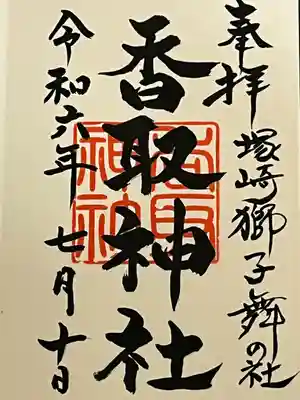 奉拝
塚崎獅子舞の社
香取神社
香取神社
令和六年
七月十日